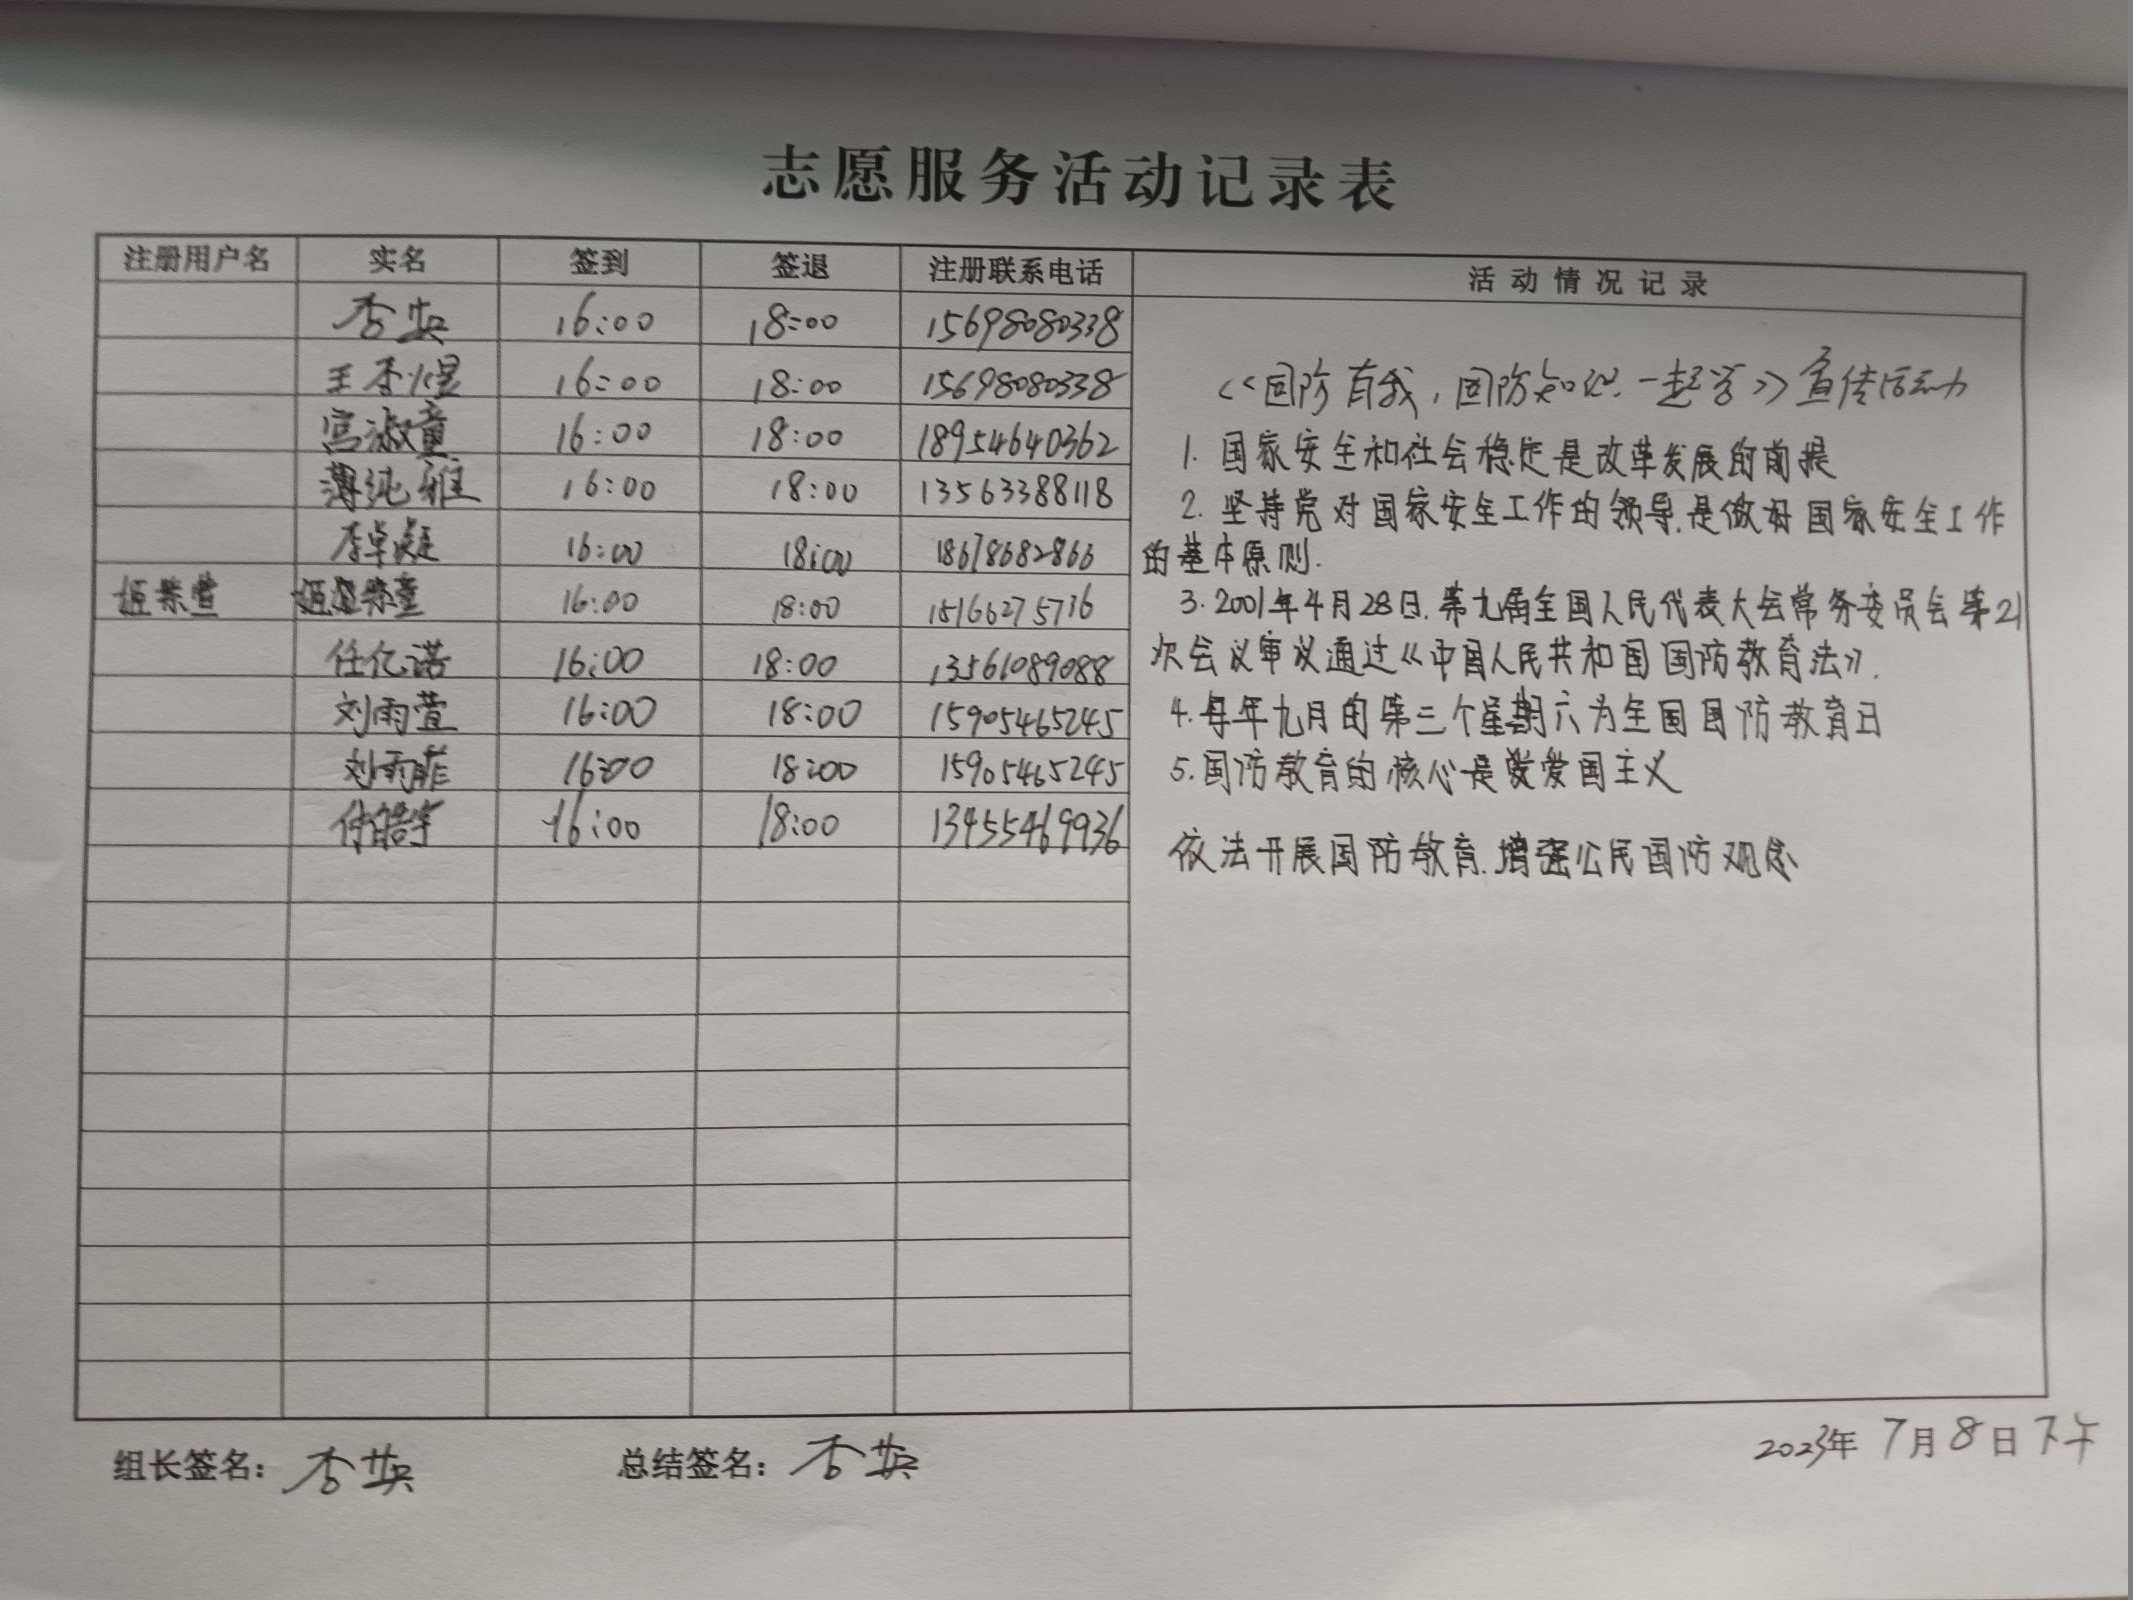 志愿服务活动记录表
注册用户名 实名 签到 签退 注册联系电话 活动情况记录
李英 16:00 18:00 15698080338
王李煜 16:00 18:00 15698080338
宫淑童 16:00 18:00 18954640362
薄纯雅 16:00 18:00 13563388118
李卓凝 16:00 18:00 18678682866
姬崇萱 16:00 18:00 15166275736
任亿诺 16:00 18:00 13561089088
刘雨萱 16:00 18:00 15905465245
刘雨菲 16:00 18:00 15905465245
付皓宇 16:00 18:00 13455469936
《国防有我，国防知识一起学》宣传活动
1. 国家安全和社会稳定是改革发展的前提
2. 坚持党对国家安全工作的领导.是做好国家安全工作
的基本原则.
3. 2001年4月28日.第九届全国人民代表大会常务委员会第21
次会议审议通过《中国人民共和国国防教育法》.
4. 每年九月的第三个星期六为全国国防教育日
5. 国防教育的核心是爱国主义
依法开展国防教育.增强公民国防观念
组长签名：李英 总结签名：李英 2023年7月8日下午